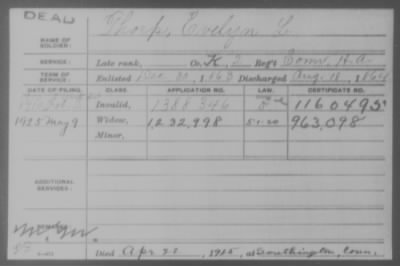 DEAD
NAME OF SOLDIER: Thorp, Evelyn L.
SERVICE: Late rank, Co. K, 2 Reg't Conn. H.A.
TERM OF SERVICE: Enlisted Dec 30, 1863 Discharged Aug. 18, 1865
DATE OF FILING. CLASS. APPLICATION NO. LAW. CERTIFICATE NO.
Invalid, 1388346 1160495
1925 May 9 Widow, 1,232,998 5-1-20 963,098
Minor,
ADDITIONAL SERVICES:
Died Apr 1925, at Southington, Conn.